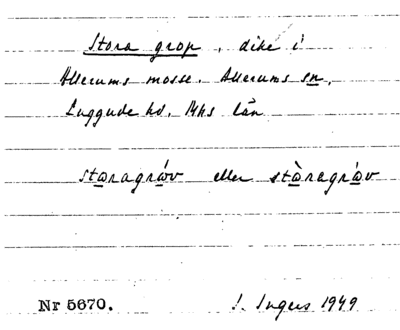 Stora grop, dike i
Allerums mosse. Allerums sn,
Luggude hd, Mhs län
staragráv eller stàragráv
Nr 5670.
I. Ingers 1949